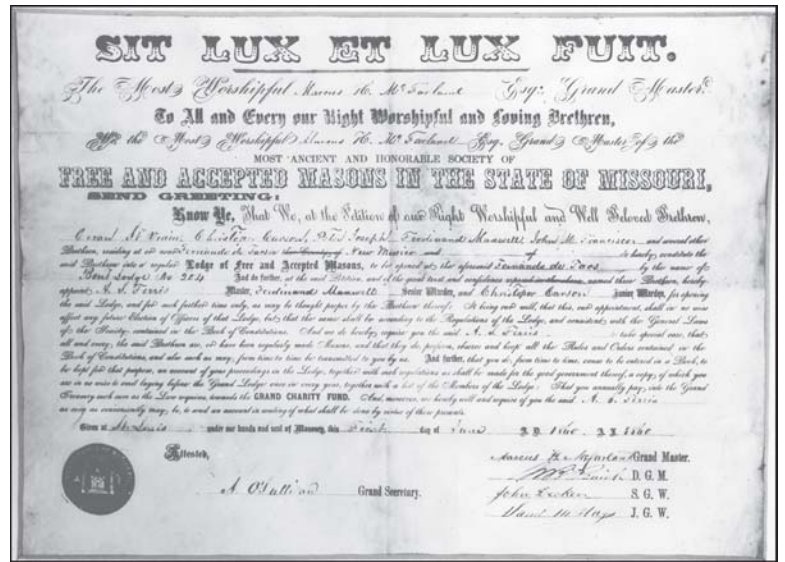 SIT LUX ET LUX FUIT.
The Most Worshipful Marcus H. McFarland Esq: Grand Master:
To All and Every our Right Worshipful and Loving Brethren,
We the Most Worshipful Marcus H. McFarland Esq. Grand Master of the
MOST ANCIENT AND HONORABLE SOCIETY OF
FREE AND ACCEPTED MASONS IN THE STATE OF MISSOURI,
SEND GREETING:
Know Ye, That We, at the Petition of our Right Worshipful and Well Beloved Brethren,
Ceran St Vrain Christian Peter Joseph Ferdinand Maxwell John M. Francisco and several other
Brethren, residing at or near Fernando de Taos New Mexico and of do hereby constitute the
said Brethren into a regular Lodge of Free and Accepted Masons, to be opened at the aforesaid Fernando de Taos by the name of
Bent Lodge No 204 And do further, at the said Petition, and of the great trust and confidence reposed in the above named Brethren, hereby
appoint A. S. Ferris Master, Ferdinand Maxwell Senior Warden, and Christopher Carson Junior Warden, for opening
the said Lodge, and for such further time only, as may be thought proper by the Brethren thereof. It being our will, that this, our appointment, shall in no wise
affect any future Election of Officers of that Lodge, but that the same shall be according to the Regulations of the Lodge, and consistent with the General Laws
of the Society contained in the Book of Constitutions. And we do hereby require you the said A. S. Ferris to take special care, that
all and every, the said Brethren are, or have been regularly made Masons, and that they do perform, observe and keep all the Rules and Orders contained in the
Book of Constitutions, and also such as may, from time to time be transmitted to you by us. And further, that you do, from time to time, cause to be entered in a Book, to
be kept for that purpose, an account of your proceedings in the Lodge, together with such regulations as shall be made for the good government thereof, a copy, of which you
are in no wise to omit laying before the Grand Lodge once in every year, together with a list of the Members of the Lodge: That you annually pay, into the Grand
Treasury such sum as the Law requires, towards the GRAND CHARITY FUND. And, moreover, we hereby will and require of you the said A. S. Ferris
as soon as conveniently may be, to send an account in writing of what shall be done by virtue of these presents.
Given at St. Louis under our hands and seal of Masonry, this First day of June A. D. 1860 A. L. 5860
Attested,
Marcus H. McFarland Grand Master.
D. G. M.
A O'Sullivan Grand Secretary.
John Decker S. G. W.
J. G. W.